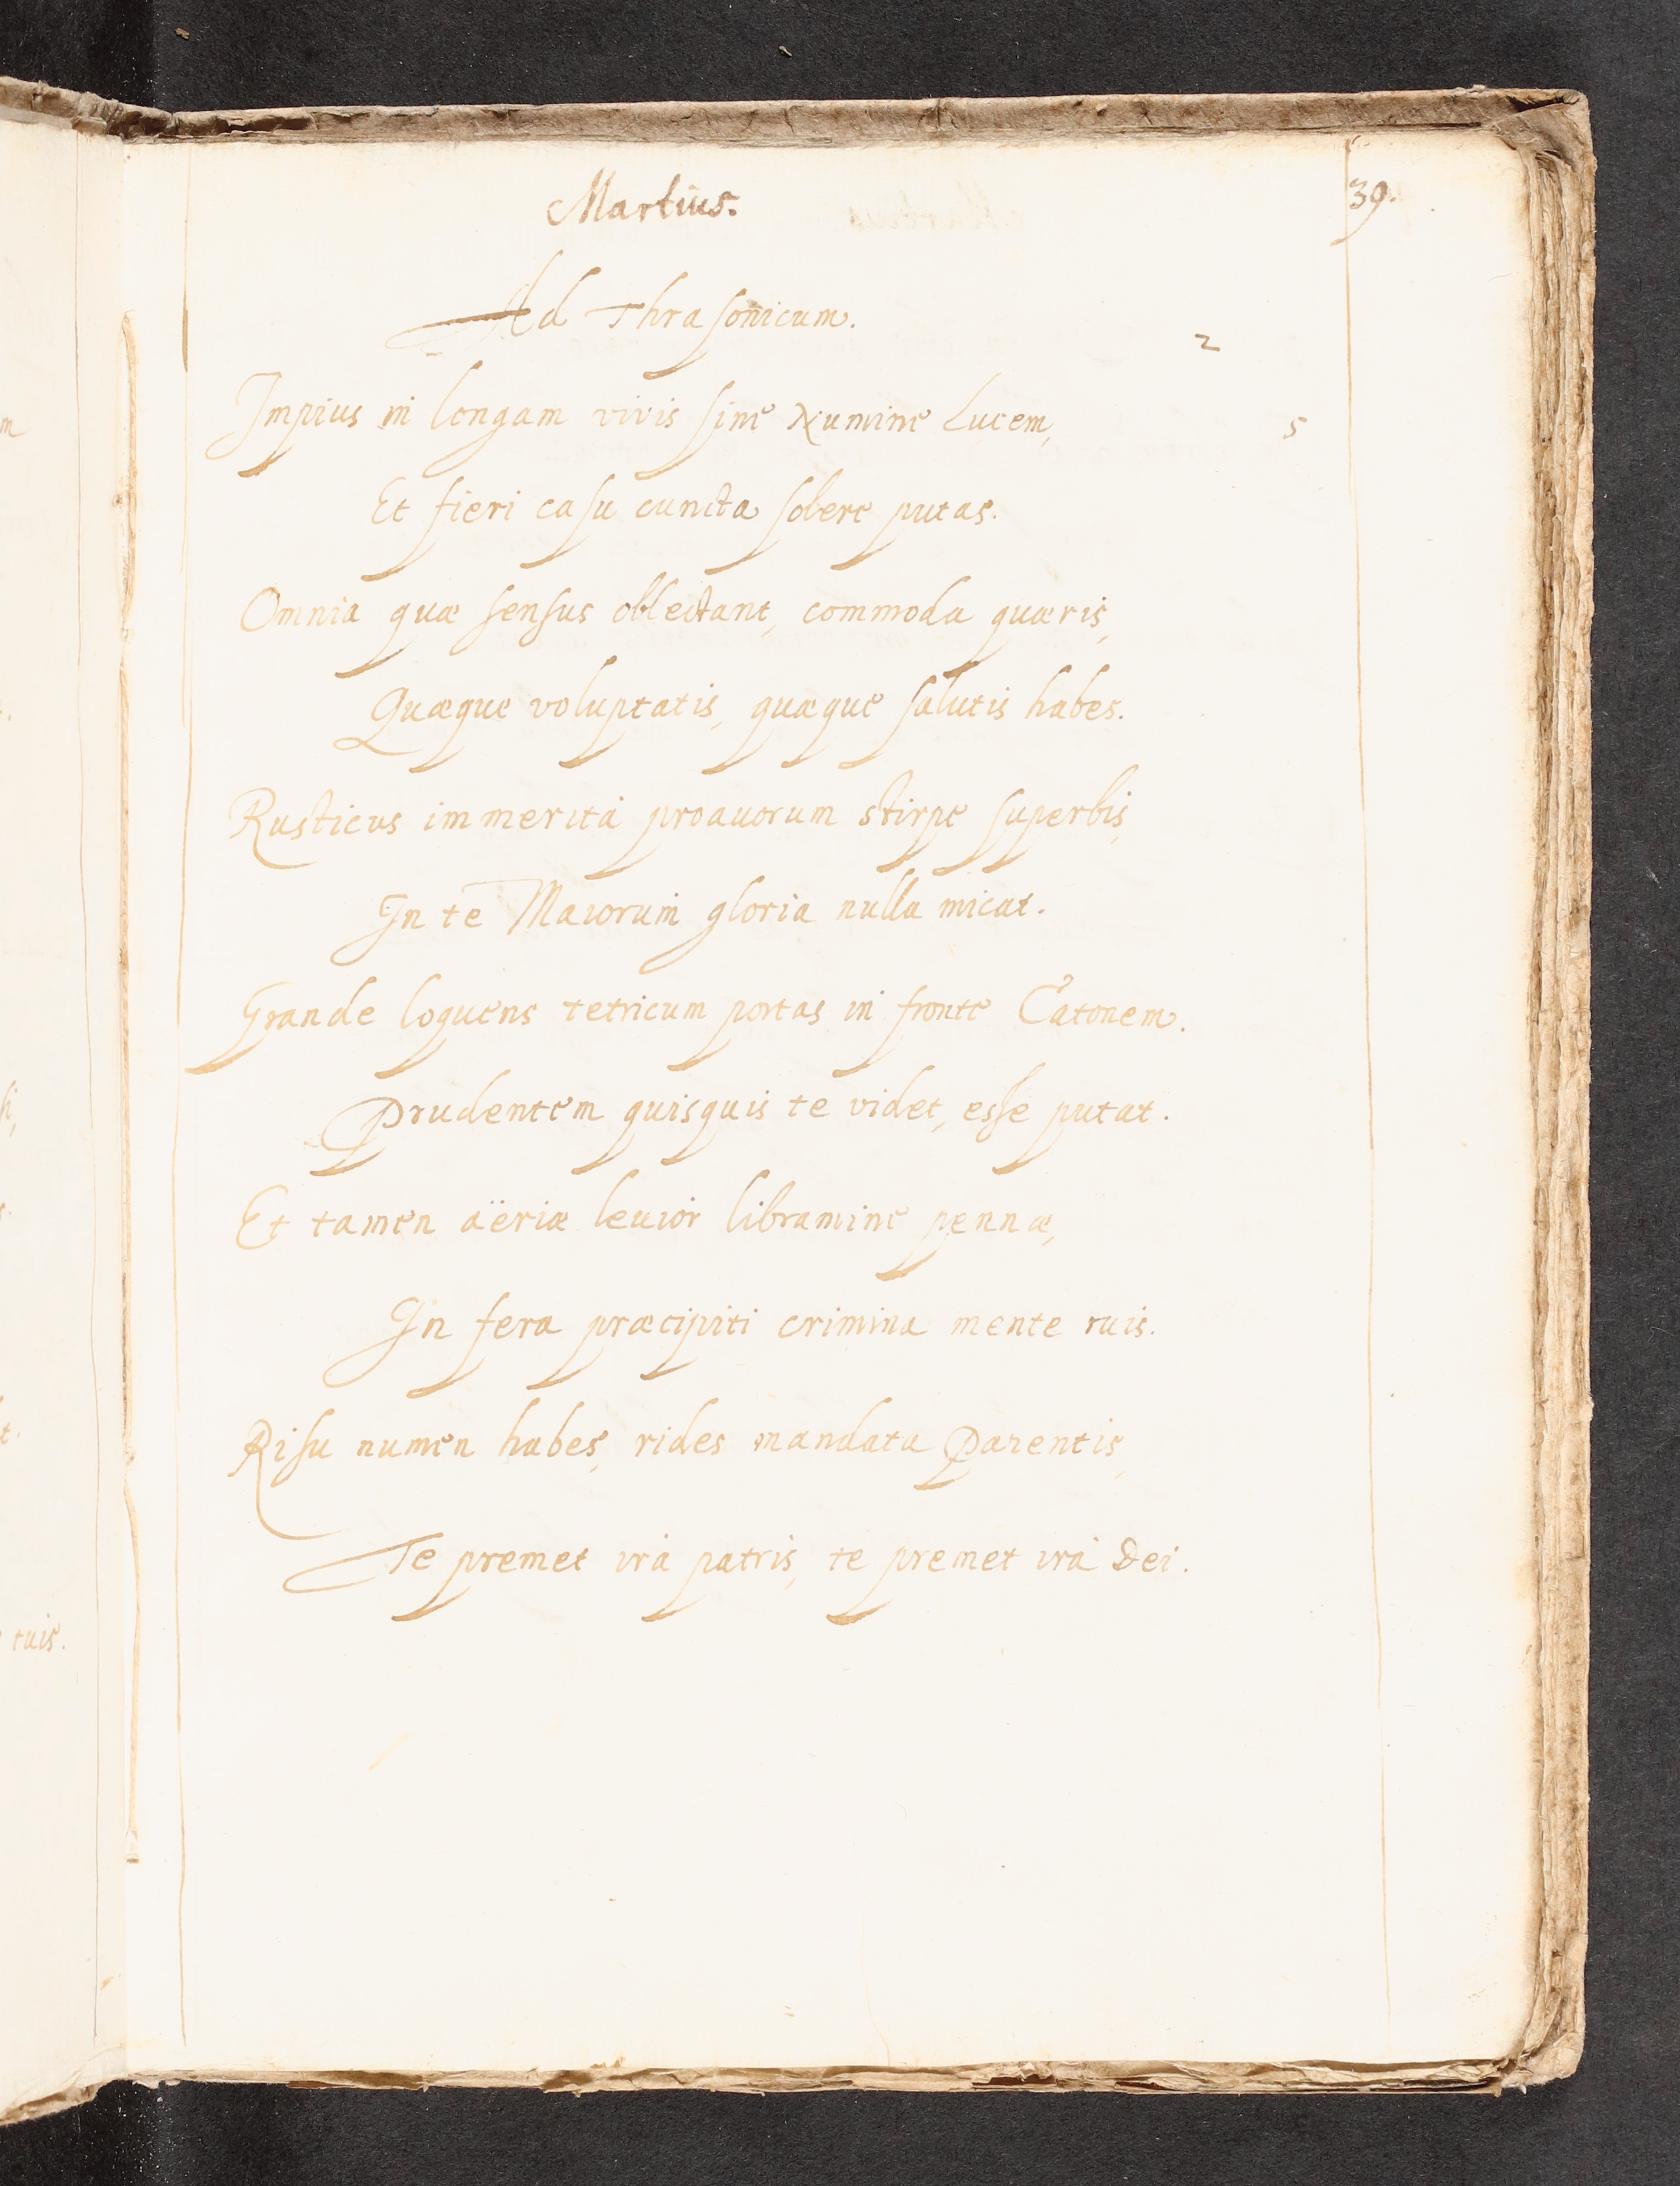 Martius.
39.
Ad Thrasonicum.
2
Impius in longam vivis sine Numine Lucem,
5
Et fieri casu cuncta solere putas.
Omnia quæ sensus oblectant, commoda quæris,
Quæque voluptatis, quæque salutis habes.
Rusticus immeritá proauorum stirpe superbis,
In te Maiorum gloria nulla micat.
Grande loquens tetricum portas in fronte Catonem.
Prudentem quisquis te videt, esse putat.
Et tamen aëriæ leuior libramine pennæ,
In fera præcipiti crimina mente ruis.
Risu numen habes, rides mandata Parentis,
Te premet ira patris, te premet ira Dei.
m
tuis.